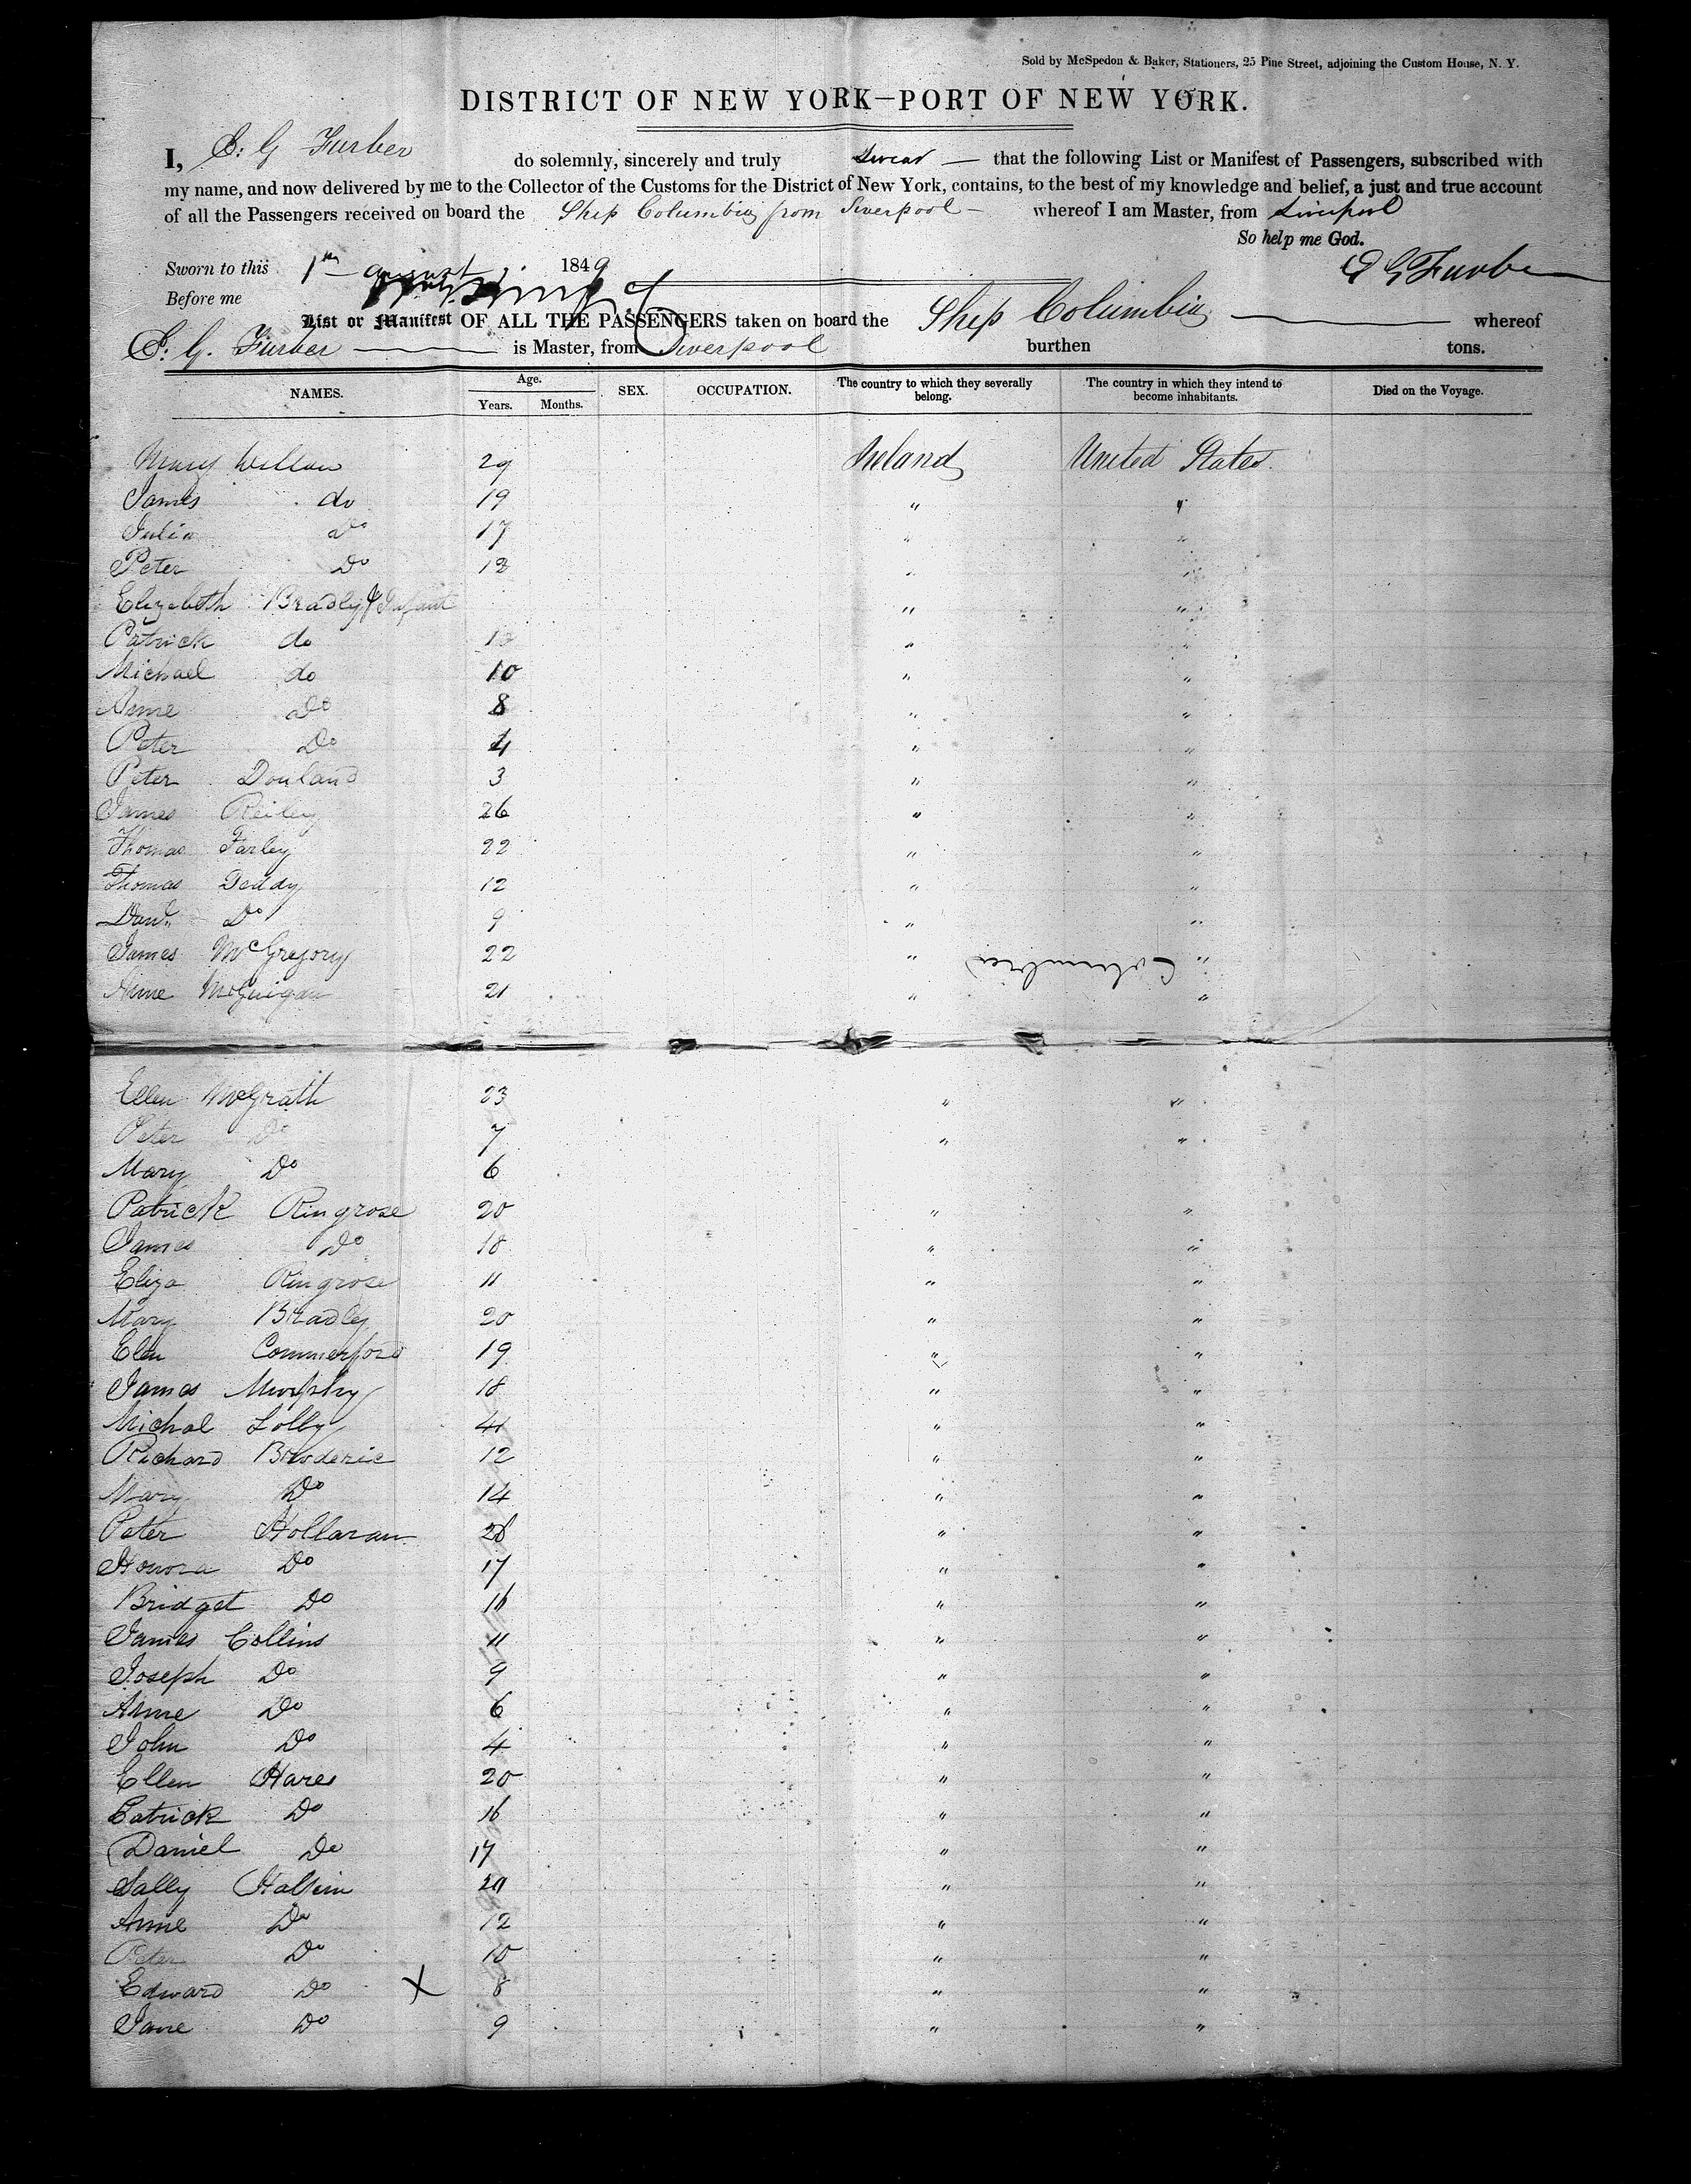 Sold by McSpedon & Baker, Stationers, 25 Pine Street, adjoining the Custom House, N. Y.
DISTRICT OF NEW YORK—PORT OF NEW YORK.
I, S. G Furber do solemnly, sincerely and truly Swear — that the following List or Manifest of Passengers, subscribed with
my name, and now delivered by me to the Collector of the Customs for the District of New York, contains, to the best of my knowledge and belief, a just and true account
of all the Passengers received on board the Ship Columbia from Liverpool — whereof I am Master, from Liverpool
So help me God.
Sworn to this 1st August 1849 S G Furber
Before me
List or Manifest OF ALL THE PASSENGERS taken on board the Ship Columbia whereof
S. G. Furber is Master, from Liverpool burthen tons.
NAMES. Age. Years. Months. SEX. OCCUPATION. The country to which they severally belong. The country in which they intend to become inhabitants. Died on the Voyage.
Mary 29 Ireland United States.
James do 19 " "
Julia Do 17 " "
Peter Do 12 " "
Elizabeth Bradly & Infant " "
Patrick do " "
Michael do 10 " "
Anne Do 8 " "
Peter Do 4 " "
Peter Donland 3 " "
James Reiley 26 " "
Thomas Farley 22 " "
Thomas Deddy 12 " "
Do 9 " "
James McGregory 22 " "
Columbia
Anne McGuigan 21 " "
Ellen McGrath 23 " "
Peter Do 7 " "
Mary Do 6 " "
Patrick Ringrose 20 " "
James Do 18 " "
Eliza Ringrose 11 " "
Mary Bradley 20 " "
Elen Commerford 19 " "
James Murphy 18 " "
Michal Lolly " "
Richard Broderic 12 " "
Mary Do 14 " "
Peter Hollaran 28 " "
Honora Do 17 " "
Bridget Do 16 " "
James Collins 11 " "
Joseph Do 9 " "
Anne Do 6 " "
John Do 4 " "
Ellen Hares 20 " "
Patrick Do 16 " "
Daniel Do 17 " "
Sally " "
Anne Do 12 " "
Peter Do 10 " "
Edward Do X 8 " "
Jane Do 9 " "